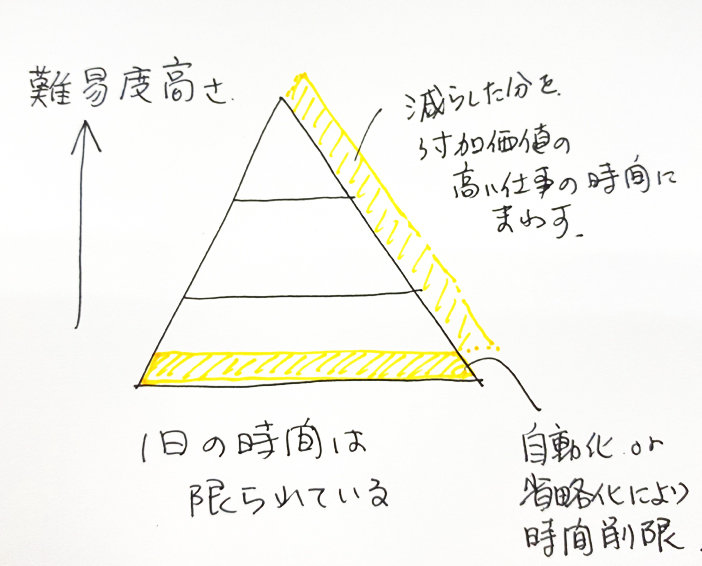 難易度高さ
減らした分を
付加価値の
高い仕事の時間に
まわす.
1日の時間は
限られている
自動化 or
省略化により
時間削限.